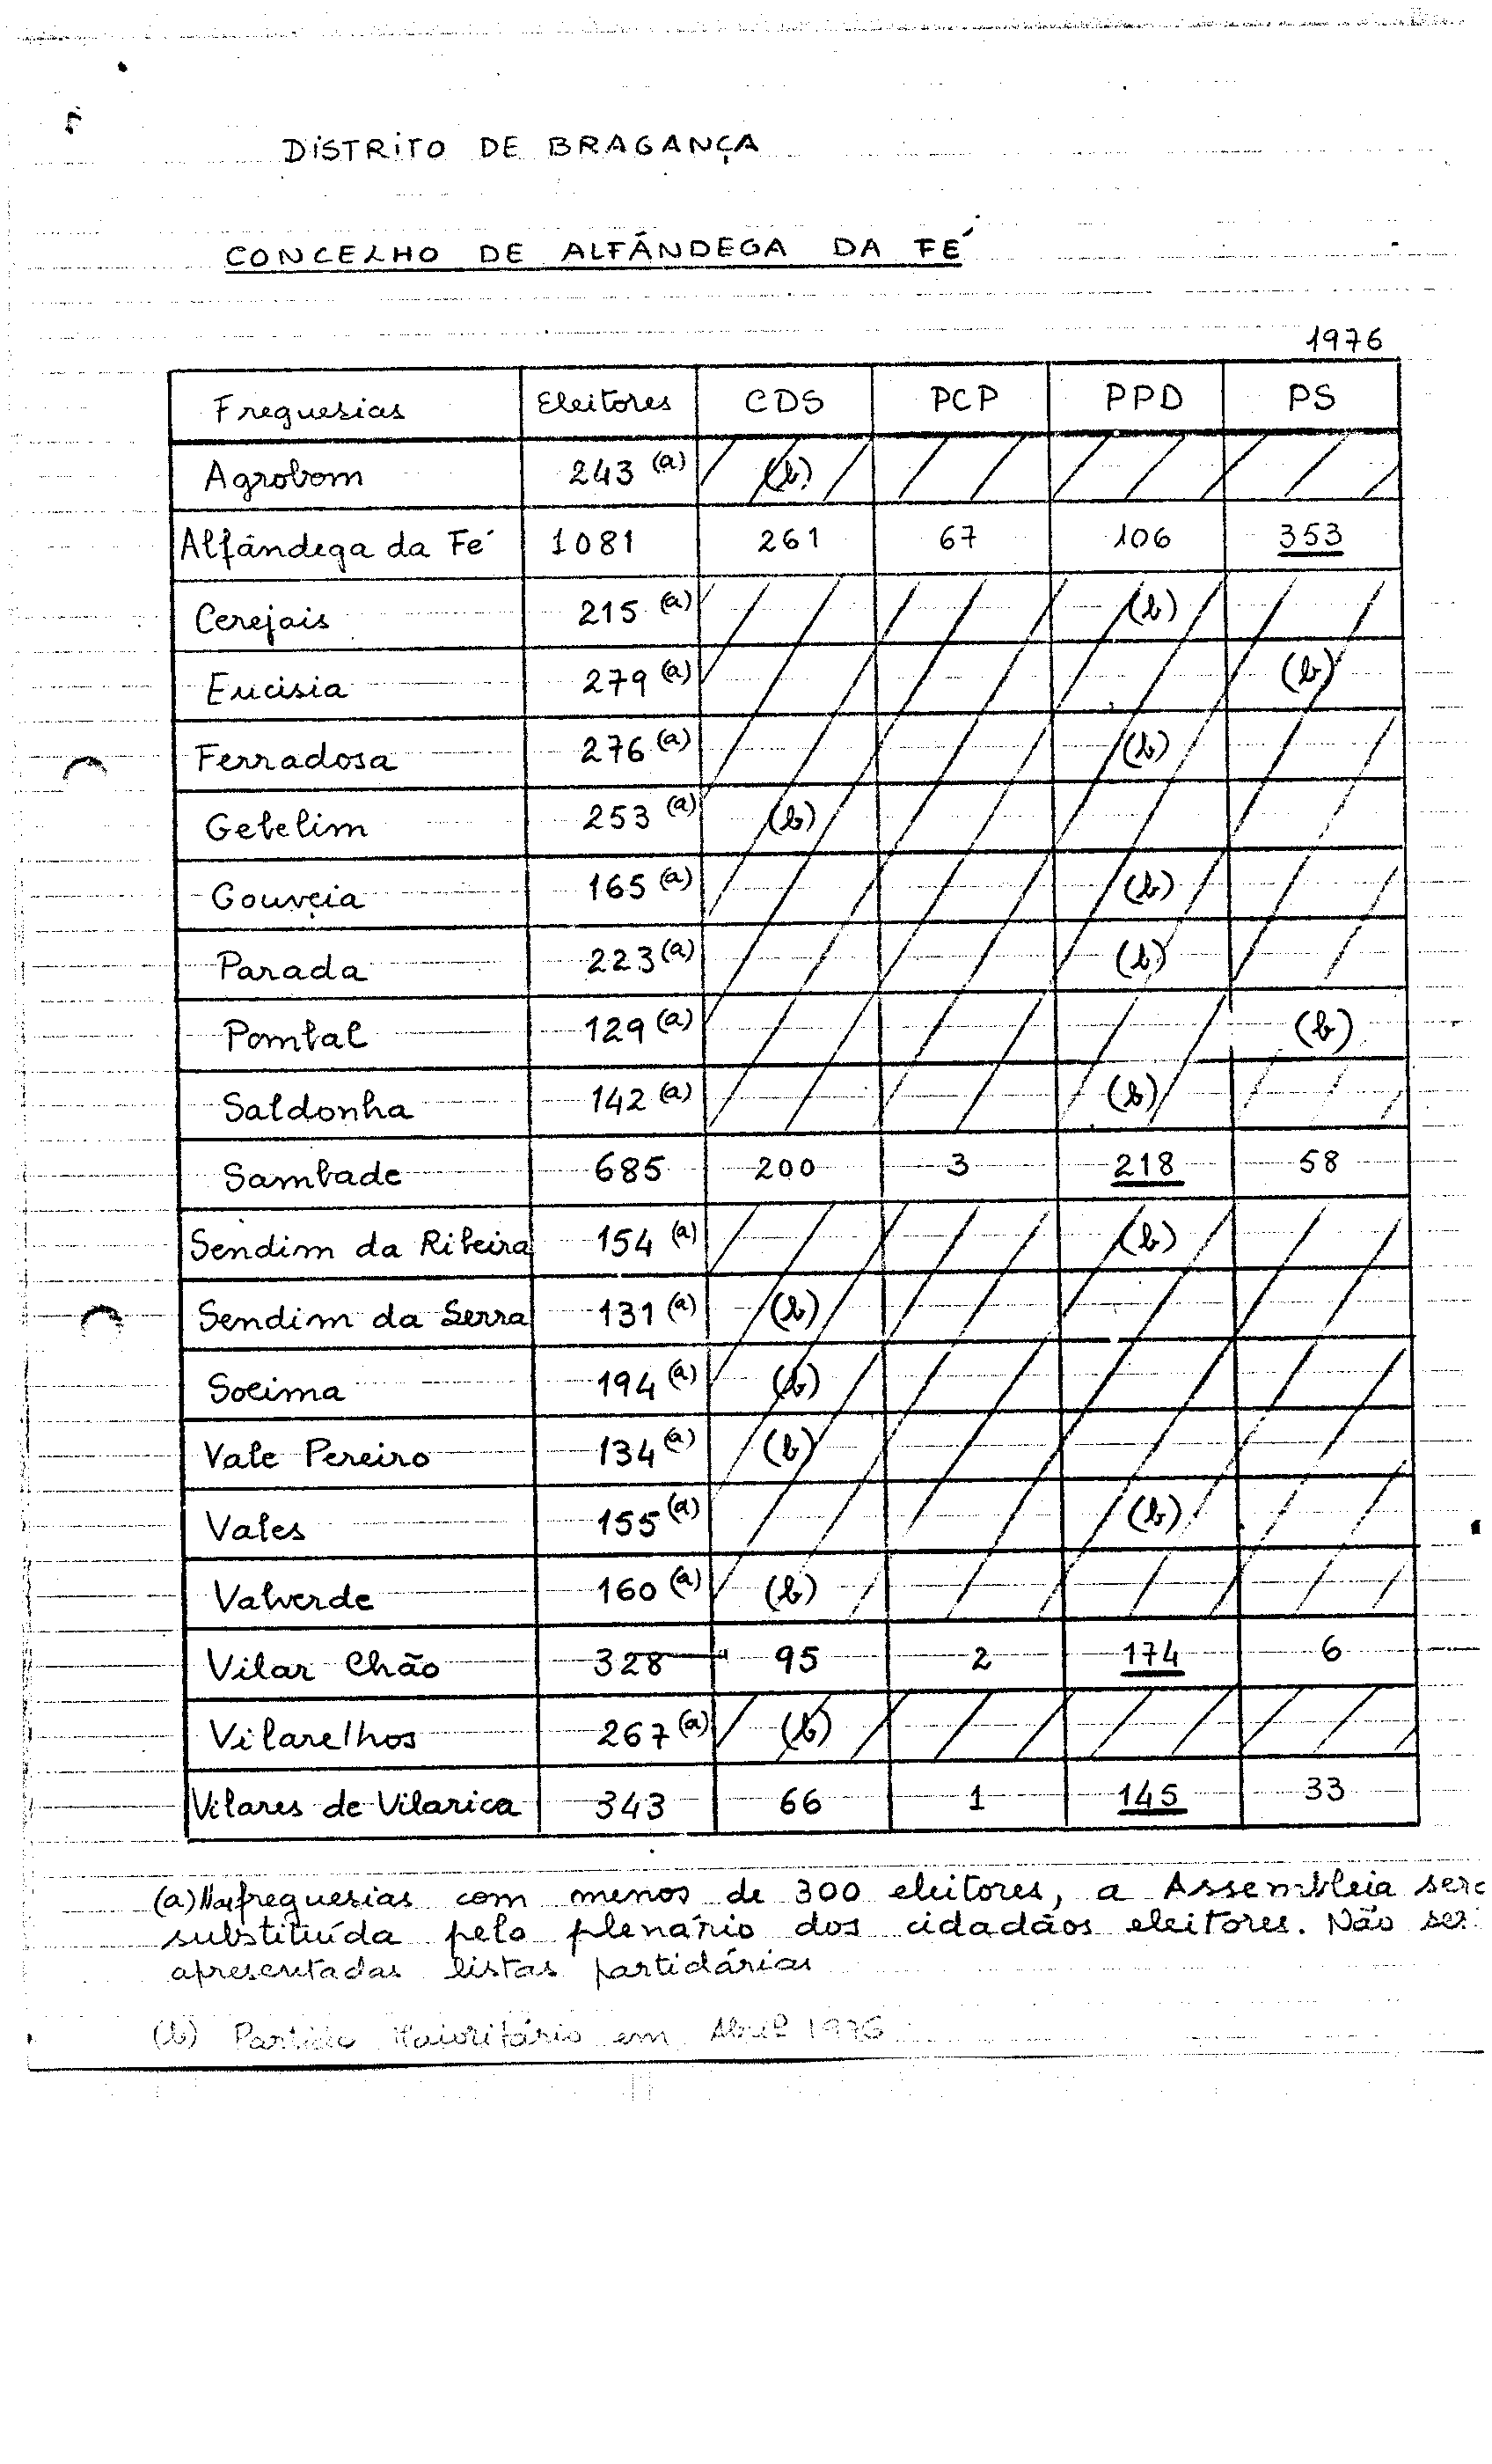 DISTRITO DE BRAGANÇA
CONCELHO DE ALFÂNDEGA DA FÉ
1976
Freguesias Eleitores CDS PCP PPD PS
Agrobom 243 (a) (b)
Alfândega da Fé 1081 261 67 106 353
Cerejais 215 (a) (b)
Eucisia 279 (a) (b)
Ferradosa 276 (a) (b)
Gebelim 253 (a) (b)
Gouveia 165 (a) (b)
Parada 223 (a) (b)
Pombal 129 (a) (b)
Saldonha 142 (a) (b)
Sambade 685 200 3 218 58
Sendim da Ribeira 154 (a) (b)
Sendim da Serra 131 (a) (b)
Soeima 194 (a) (b)
Vale Pereiro 134 (a) (b)
Vales 155 (a) (b)
Valverde 160 (a) (b)
Vilar Chão 328 95 2 174 6
Vilarelhos 267 (a) (b)
Vilares de Vilarica 343 66 1 145 33
(a) Nas freguesias com menos de 300 eleitores, a Assembleia
substituída pelo plenário dos cidadãos eleitores. Não
apresentadas listas partidárias
(b) Partido Maioritário em Abril 1976